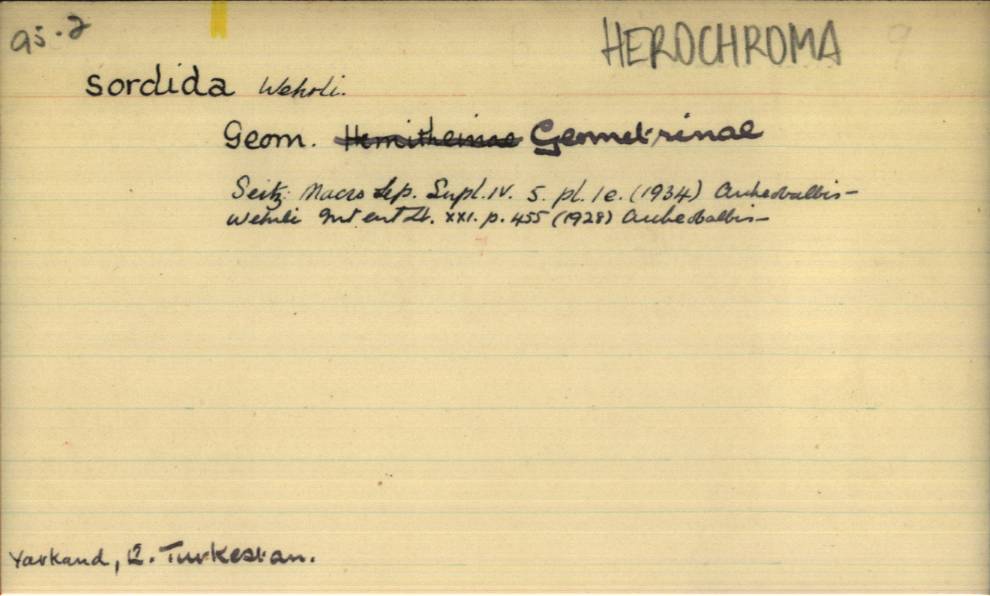 95.2
HEROCHROMA
sordida Wehrli.
Geom. Hemitheinae Geometrinae
Seitz. Macro Lep. Supl. IV. 5. pl. 1e. (1934) Archeobalbis-
Wehrli Int ent Zt. XXI. p. 455 (1928) Archeobalbis-
Yarkand, E. Turkestan.